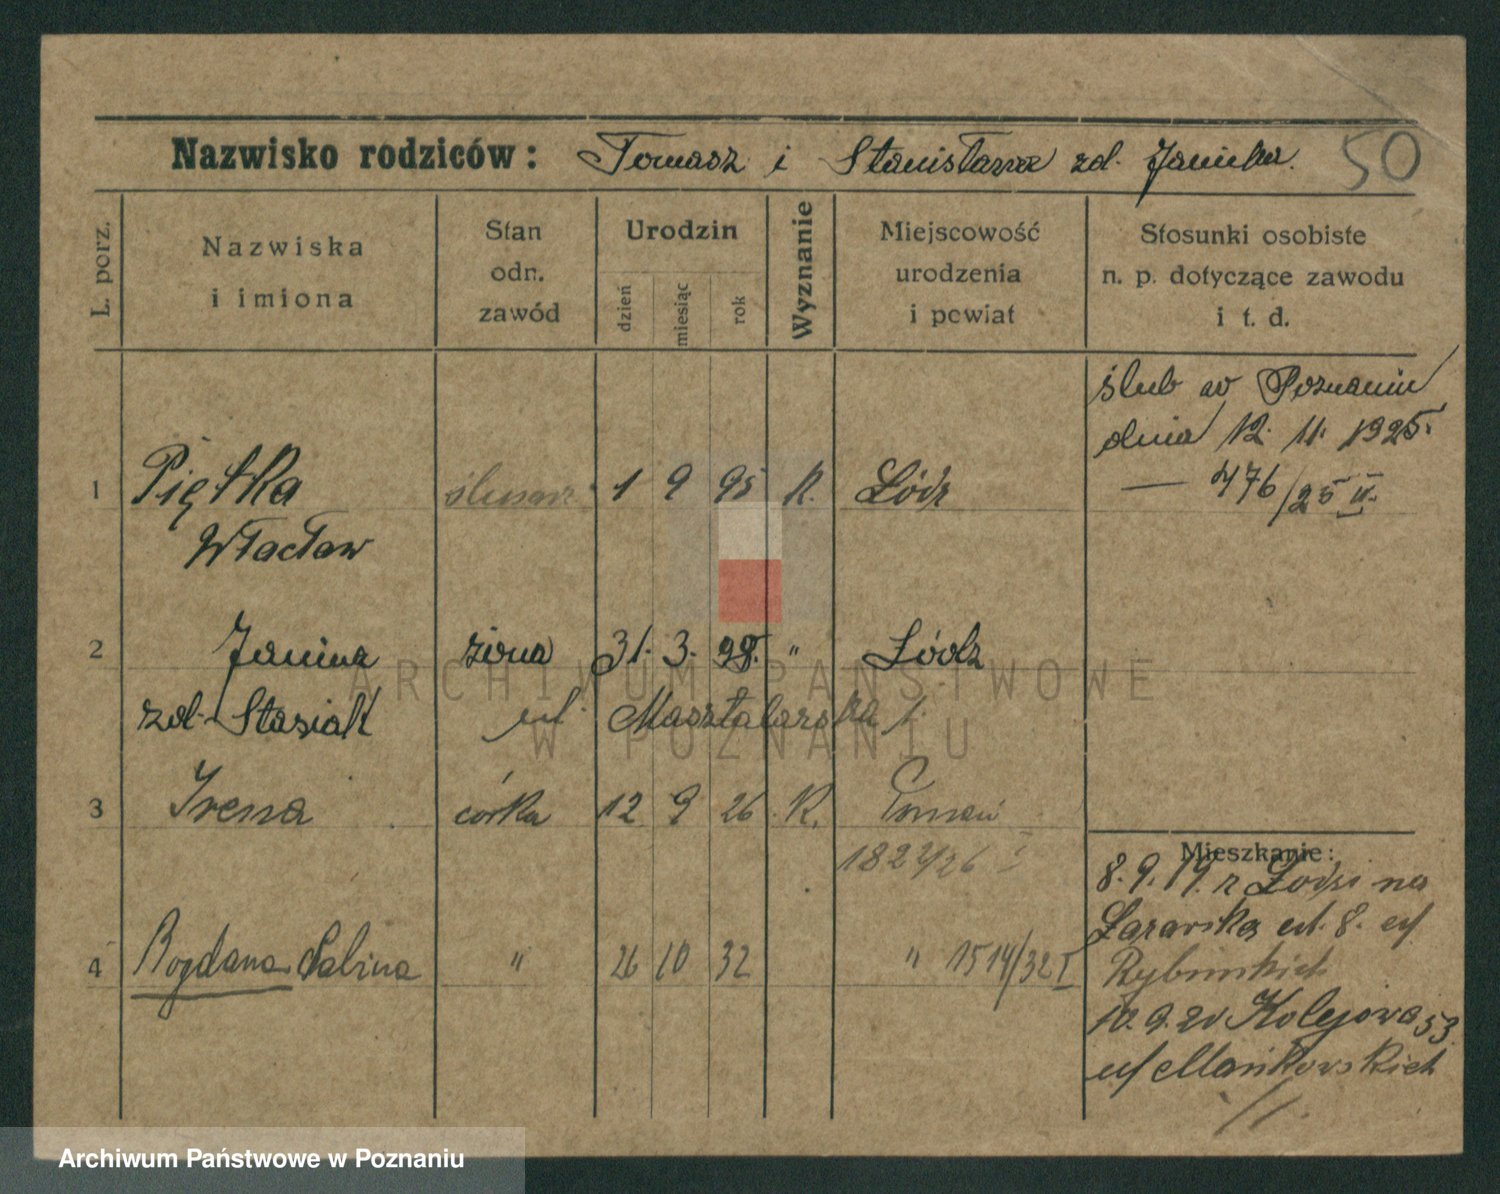 Nazwisko rodziców: Tomasz i Stanisława zd. Janicka. 50
L. porz.
Nazwiska
i imiona
Stan
odn.
zawód
Urodzin
dzień
miesiąc
rok
Wyznanie
Miejscowość
urodzenia
i powiat
Stosunki osobiste
n. p. dotyczące zawodu
i t. d.
ślub w Poznaniu
dnia 12. 11. 1925.
— 476/25 II.
1 Piętka ślusarz 1 9 95 K. Łódz
Wacław
2 Janina żona 31. 3. 99. " Łódz
zd. Stasiak ul. Masztalarska
3 Irena córka 12 9 26 K. Poznań
1827/26 I
4 Bogdana Sabina " 26 10 32 " 1514/32 I
Mieszkanie:
8.9.19. z Łodzi na
Łazarska 8.
10.9.20 Kolejowa 53
Mańkowskich
ARCHIWUM PAŃSTWOWE
W POZNANIU
Archiwum Państwowe w Poznaniu